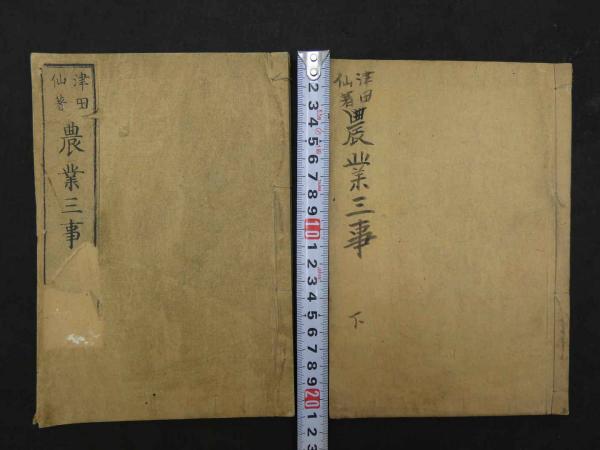 津田
仙著
農業三事
津田
仙著
農業三事
下
2
3
4
5
6
7
8
9
10
1
2
3
4
5
6
7
8
9
20
1
2
3